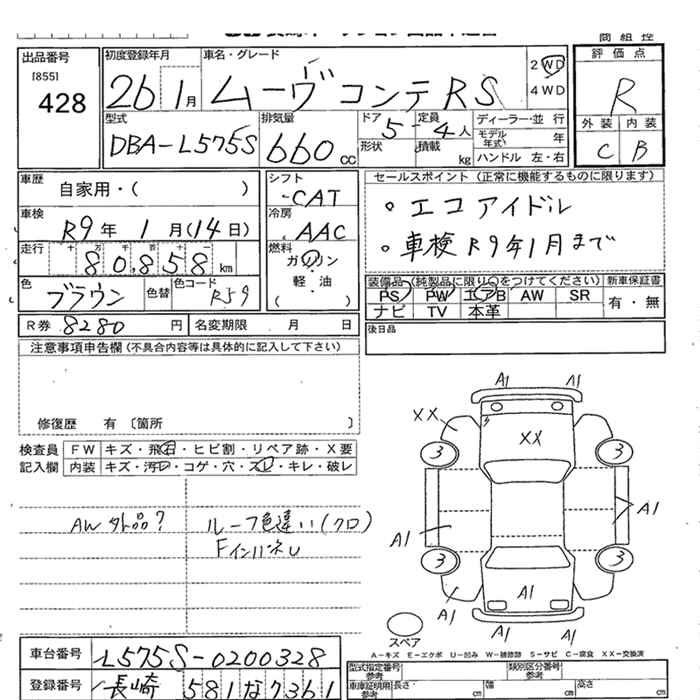 商 組 控
出品番号
[855]
428
初度登録年月
26年 1月
車名・グレード
ムーヴ コンテ RS
2WD
4WD
評 価 点
R
外 装 内 装
C B
型式
DBA-L575S
排気量
660 cc
ドア
5
形状
定員
4人
積載
kg
ディーラー・並 行
モデル年式 年
ハンドル 左・右
車歴
自家用・( )
車検
R9年 1月(14日)
走行
十 万 千 百 十 一
80,858 km
色
ブラウン
色替
色コード
R59
シフト
CAT
冷房
AAC
燃料
ガソリン
軽・油
( )
セールスポイント (正常に機能するものに限ります)
。エコアイドル
。車検R9年1月まで
装備品(純製品に限り○をつけてください) 新車保証書
PS PW エアB AW SR
ナビ TV 本革
有・無
R券 8280 円 名変期限 月 日
後日品
注意事項申告欄(不具合内容等は具体的に記入して下さい)
修復歴 有 〔箇所 〕
検査員
記入欄
FW キズ・飛石・ヒビ割・リペア跡・X要
内装 キズ・汚レ・コゲ・穴・スレ・キレ・破レ
AW 外品?
ルーフ色違い(クロ)
FインハネU
A1 A1
XX
XX
3 3
A1
A1
3 3
A1
A1
A1 A1
スペア
A-キズ E-エクボ U-凹み W-補修跡 S-サビ C-腐食 XX-交換済
車台番号 L575S-0200328
登録番号 長崎 581な7361
型式指定番号
参考
類別区分番号
参考
車庫証明用
参考
長さ cm 幅 cm 高さ cm